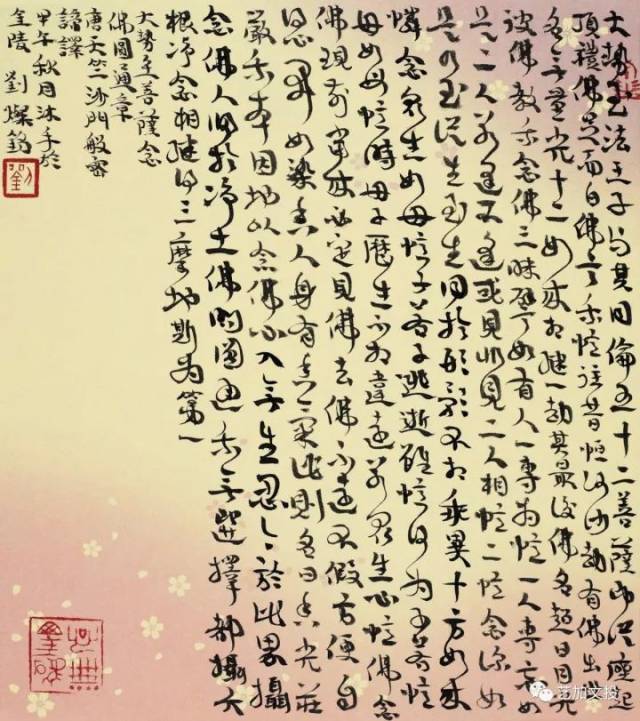 大勢至法王子与其同倫五十二菩薩即從座起
頂禮佛足而白佛言我憶往昔恒河沙劫有佛出世
名无量光十二如來相繼一劫其最後佛名超日月光
彼佛教我念佛三昧譬如有人一專為憶一人專忘如
是二人若逢不逢或見非見二人相憶二憶念深如
是乃至從生至生同於形影不相乖異十方如來
憐念眾生如母憶子若子逃逝雖憶何為子若憶
母如母憶時母子歷生不相違遠若眾生心憶佛念
佛現前當來必定見佛去佛不遠不假方便自
得心開如染香人身有香氣此則名曰香光莊
嚴我本因地以念佛心入无生忍今於此界攝
念佛人歸於淨土佛問圓通我无選擇都攝六
根淨念相繼得三摩地斯為第一
大勢至菩薩念
佛圓通章
唐天竺沙門般密
諦譯
甲午秋月沐手於
金陵 劉燦銘
劉
艺加文投